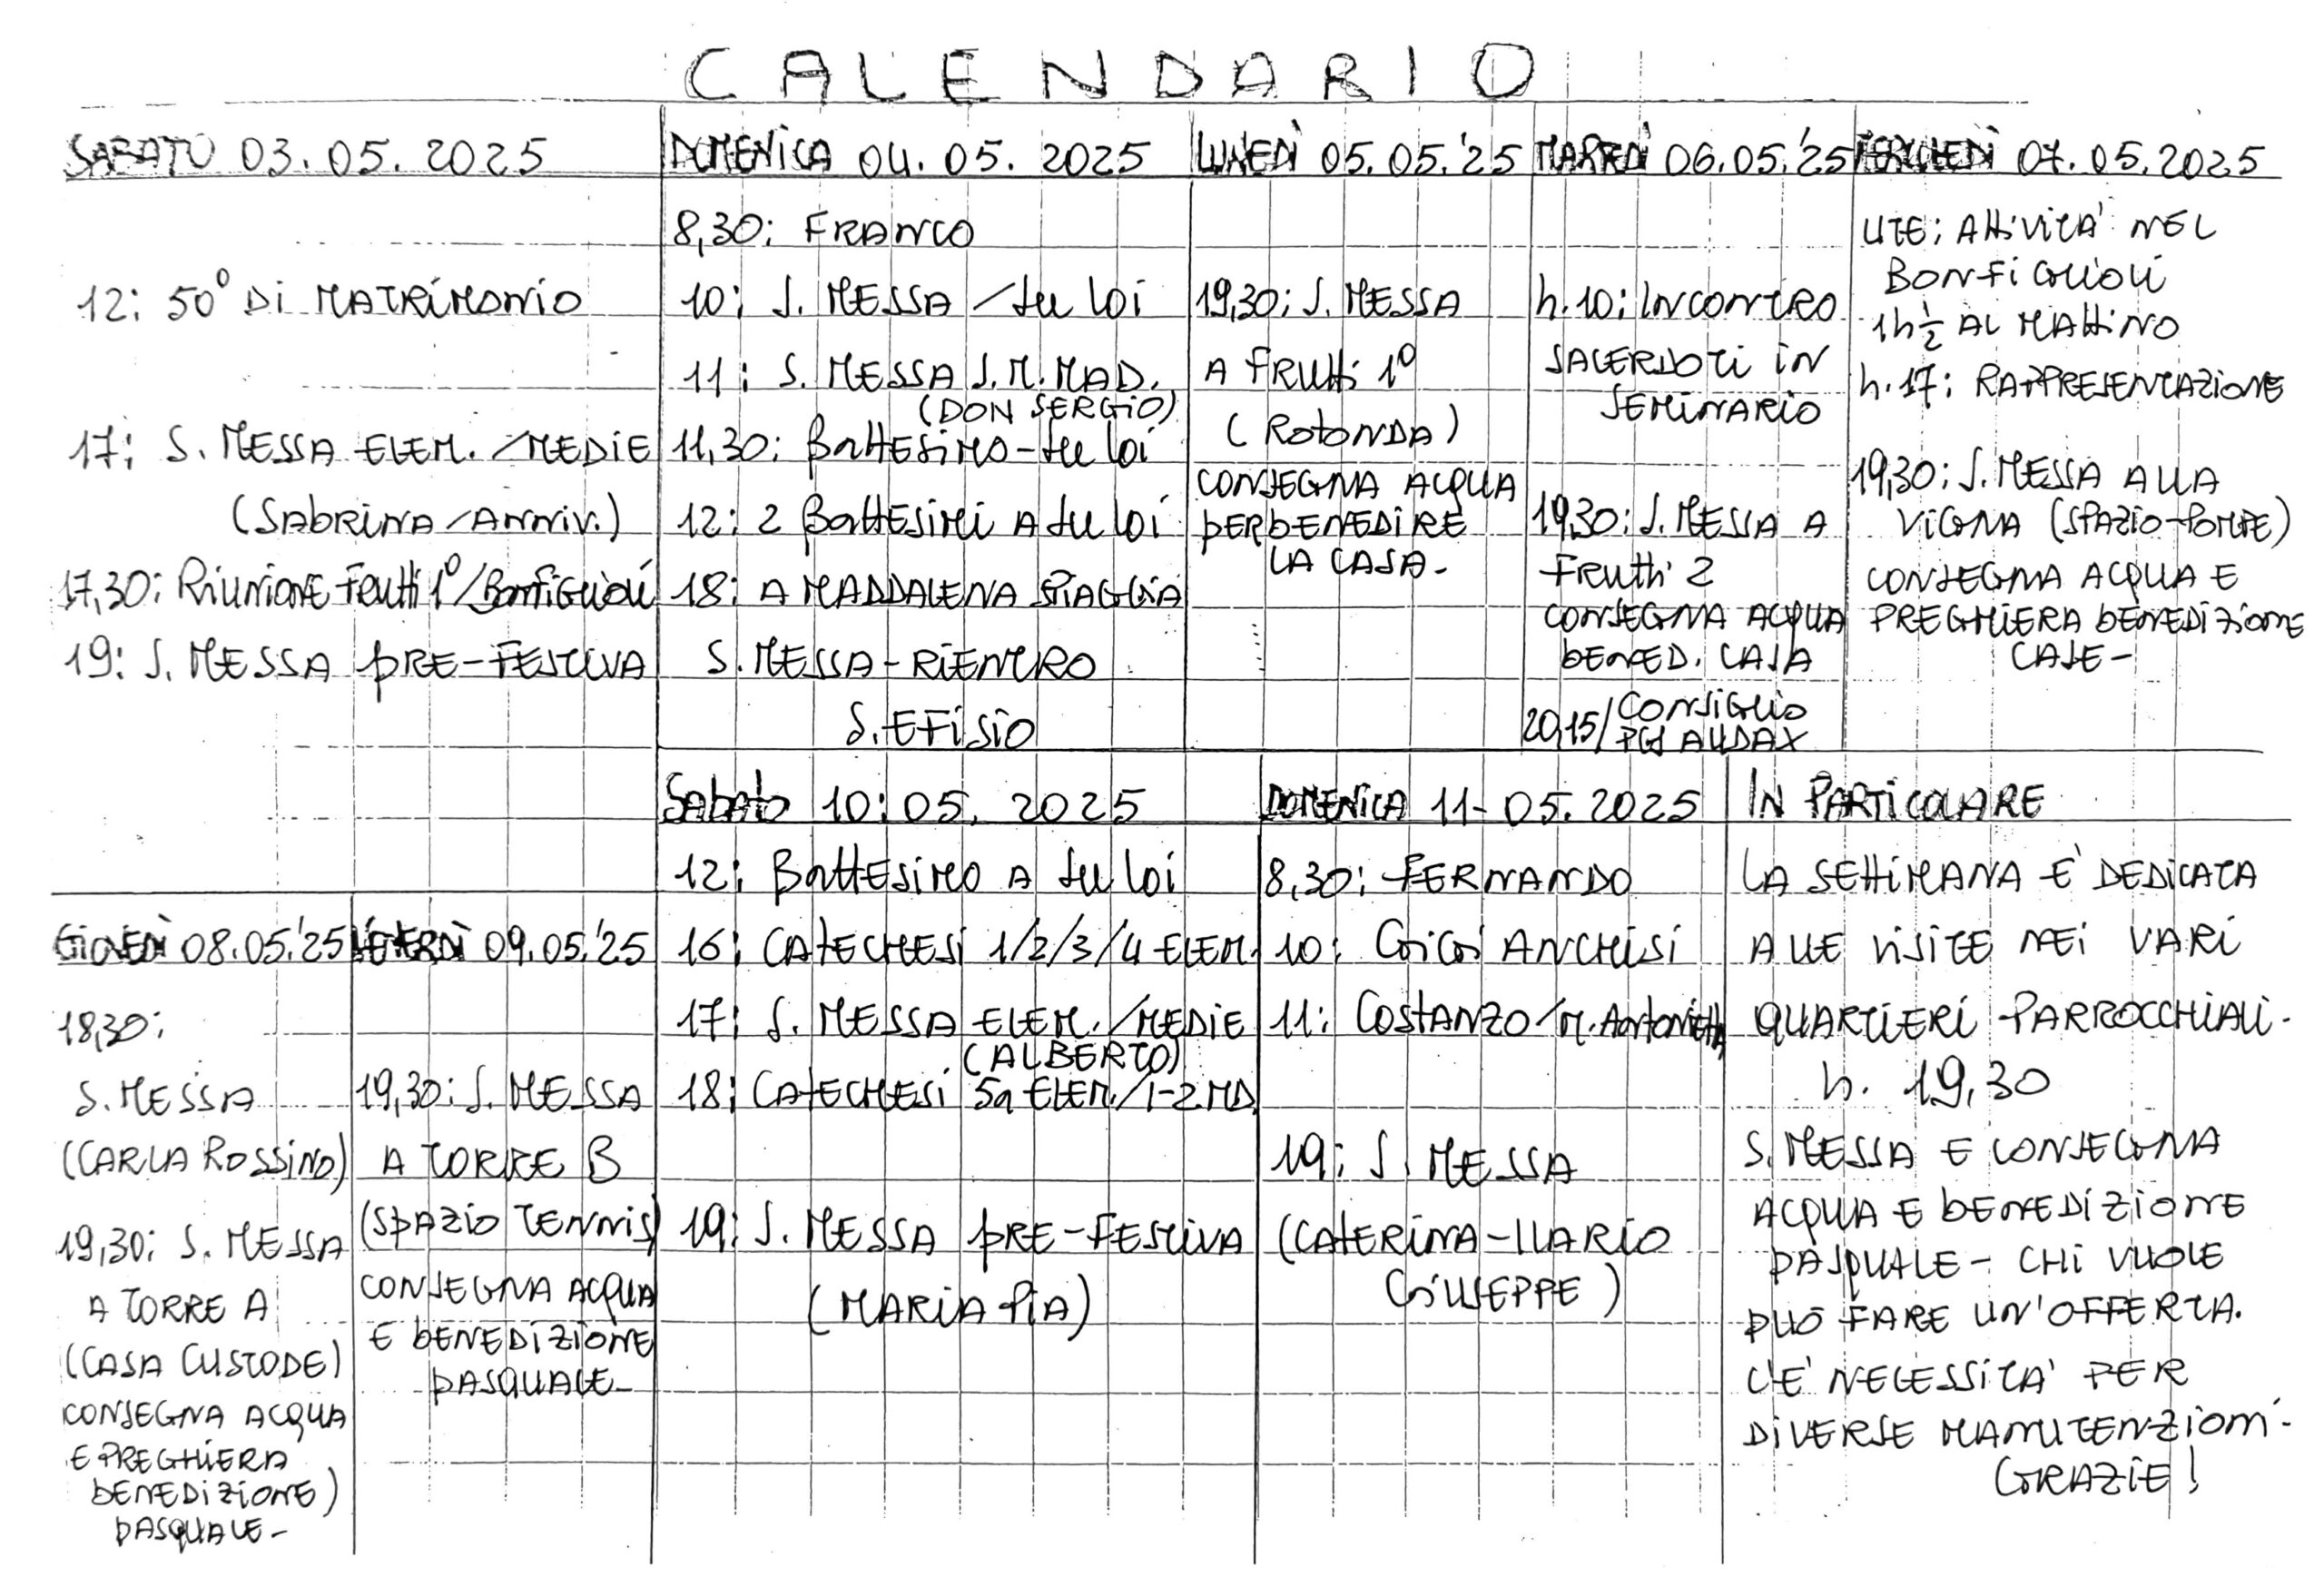 CALENDARIO
SABATO 03.05.2025
12: 50° Di MATRIMONIO
17: S. MESSA ELEM. / MEDIE
(SABRINA / ANNIV.)
17,30: RIUNIONE FRUTTI 1°/BONFIGLIOLI
19: S. MESSA PRE-FESTIVA
DOMENICA 04.05.2025
8,30: FRANCO
10: S. MESSA / SU LOI
11: S. MESSA S.M. MAD.
(DON SERGIO)
11,30: BATTESIMO - SU LOI
12: 2 BATTESIMI A SU LOI
18: A MADDALENA SPIAGGIA
S. MESSA - RIENTRO
S. EFISIO
LUNEDÌ 05.05.'25
19,30: S. MESSA
A FRUTTI 1°
(ROTONDA)
CONSEGNA ACQUA
PER BENEDIRE
LA CASA -
MARTEDÌ 06.05.'25
h. 10: INCONTRO
SACERDOTI IN
SEMINARIO
19,30: S. MESSA A
FRUTTI 2
CONSEGNA ACQUA
BENED. CASA
20,15/ CONSIGLIO
PGS AUDAX
MERCOLEDÌ 07.05.2025
UTE: ATTIVITA' NEL
BONFIGLIOLI
1h½ AL MATTINO
h. 17: RAPPRESENTAZIONE
19,30: S. MESSA ALLA
VIGNA (SPAZIO-POMPE)
CONSEGNA ACQUA E
PREGHIERA BENEDIZIONE
CASE -
GIOVEDÌ 08.05.'25
18,30:
S. MESSA
(CARLA ROSSINO)
19,30: S. MESSA
A TORRE A
(CASA CUSTODE)
CONSEGNA ACQUA
E PREGHIERA
BENEDIZIONE)
PASQUALE -
VENERDÌ 09.05.'25
19,30: S. MESSA
A TORRE B
(SPAZIO TENNIS)
CONSEGNA ACQUA
E BENEDIZIONE
PASQUALE -
SABATO 10.05.2025
12: BATTESIMO A SU LOI
16: CATECHESI 1/2/3/4 ELEM.
17: S. MESSA ELEM. / MEDIE
(ALBERTO)
18: CATECHESI 5a ELEM. / 1-2 MD
19: S. MESSA PRE-FESTIVA
(MARIA PIA)
DOMENICA 11-05.2025
8,30: FERNANDO
10: ANCHISI
11: COSTANZO / M. ANTONIETTA
19: S. MESSA
(CATERINA - ILARIO
GIUSEPPE)
IN PARTICOLARE
LA SETTIMANA E' DEDICATA
ALLE VISITE NEI VARI
QUARTIERI PARROCCHIALI -
h. 19,30
S. MESSA E CONSEGNA
ACQUA E BENEDIZIONE
PASQUALE - CHI VUOLE
PUÒ FARE UN'OFFERTA.
C'E' NECESSITA' PER
DIVERSE MANUTENZIONI -
GRAZIE!